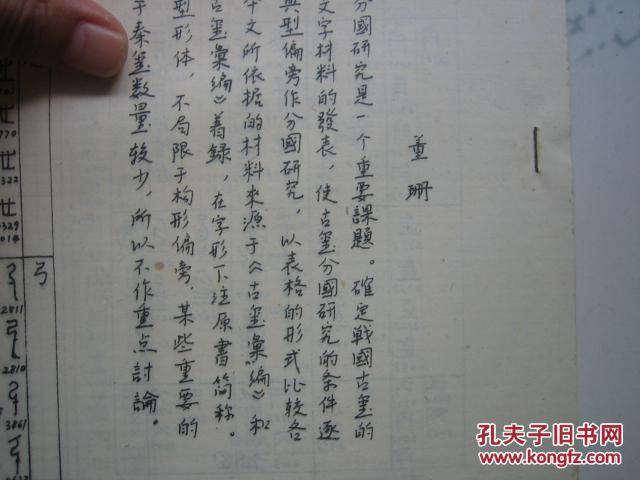 董珊
分國研究是一个重要課題。確定戰國古璽的
文字材料的發表，使古璽分國研究的条件逐
典型偏旁作分國研究，以表格的形式比较各
本文所依据的材料来源于《古璽彙編》和
古璽彙編》着録，在字形下注原書简称。
型形体，不局限于构形偏旁，某些重要的
于秦璽数量较少，所以不作重点討論。
弓
770
322
0329
014
2811
2810
3861
孔夫子旧书网
www.kongfz.com